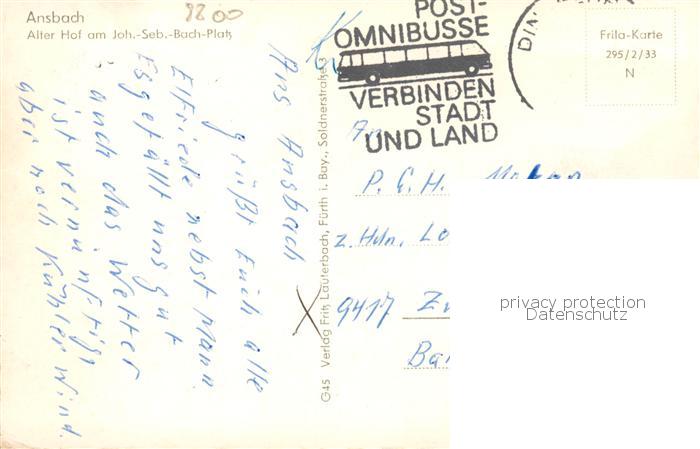 Ansbach
Alter Hof am Joh.-Seb.-Bach-Platz
8800
POST-
OMNIBUSSE
VERBINDEN
STADT
UND LAND
Frila-Karte
295/2/33
N
Aus Ansbach
grüßt Euch alle
Elfriede nebst Mann
Es gefällt uns gut
auch das Wetter
ist vernünftig,
aber noch kühler Wind.
G45 Verlag Fritz Lauterbach, Fürth i. Bay., Soldnerstraße 3
An
P. G. H.
z. Hdn. Lo
9417 Zw
Ba
privacy protection
Datenschutz